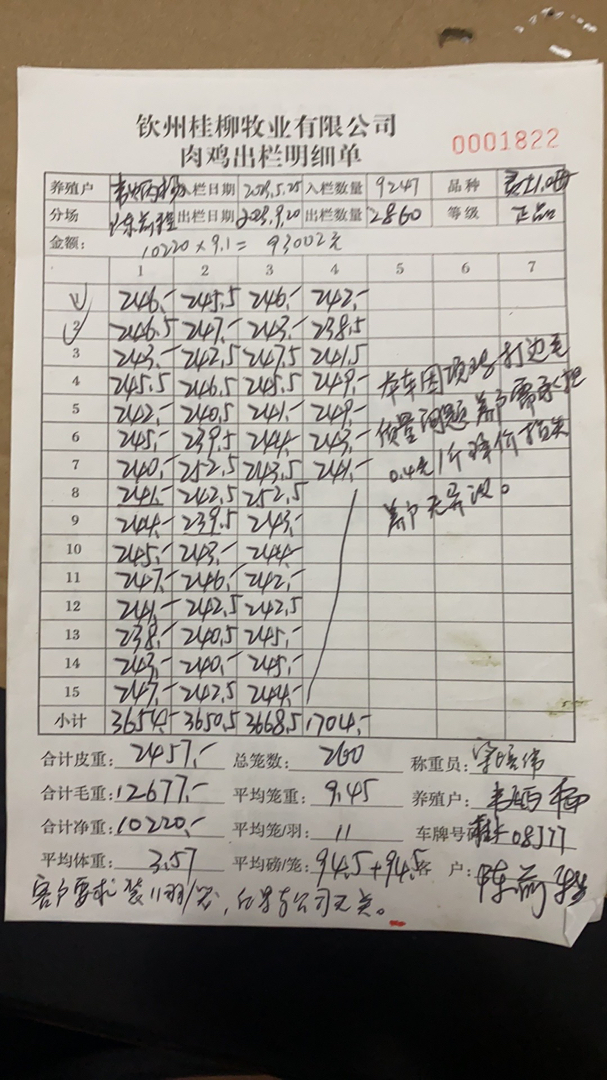 钦州桂柳牧业有限公司
肉鸡出栏明细单
0001822
养殖户 入栏日期 2023.5.25 入栏数量 9247 品种
分场 陈前程 出栏日期 2023.9.20 出栏数量 2860 等级 正品
金额: 10220×9.1= 93002元
1 2 3 4 5 6 7
1 246.- 245.5 246.- 242.-
2 246.5 247.- 243.- 238.5
3 243.- 242.5 247.5 241.5
4 245.5 246.5 245.5 249.- 本车因项鸡打边毛
5 242.- 240.5 241.- 249.- 质量问题养户需承担
6 245.- 239.5 244.- 243.-
7 240.- 252.5 243.5 241.- 0.4元/斤降价损失
8 241.- 242.5 252.5 养户无异议。
9 244.- 239.5 243.-
10 245.- 243.- 244.-
11 247.- 246.- 242.-
12 241.- 242.5 242.5
13 238.- 240.5 245.-
14 243.- 240.- 245.-
15 247.- 242.5 244.-
小计 3654.- 3650.5 3668.5 1704.-
合计皮重: 2457.- 总笼数: 260 称重员:
合计毛重: 12677.- 平均笼重: 9.45 养殖户:
合计净重: 10220.- 平均笼/羽: 11 车牌号 08J77
平均体重: 3.57 平均磅/笼: 94.5+94.5 客 户: 陈前程
客户要求装11羽/笼,如异与公司无关。